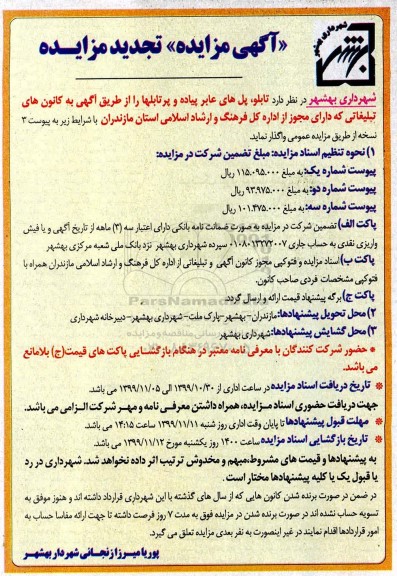 شهرداری بهشهر
بهشهر
«آگهی مزایده» تجدید مزایـــده
شهرداری بهشهر در نظر دارد تابلو، پل های عابر پیاده و پرتابلها را از طریق آگهی به کانون های
تبلیغاتی که دارای مجوز از اداره کل فرهنگ و ارشاد اسلامی استان مازندران با شرایط زیر به پیوست ۳
نسخه از طریق مزایده عمومی واگذار نماید.
۱) نحوه تنظیم اسناد مزایده: مبلغ تضمین شرکت در مزایده:
پیوست شماره یک: به مبلغ ۱۱۵.۰۹۵.۰۰۰ ریال
پیوست شماره دو: به مبلغ ۹۳.۹۷۵.۰۰۰ ریال
پیوست شماره سه: به مبلغ ۱۰۱.۴۷۵.۰۰۰ ریال
پاکت الف) تضمین شرکت در مزایده به صورت ضمانت نامه بانکی دارای اعتبار سه (۳) ماهه از تاریخ آگهی و یا فیش
واریزی نقدی به حساب جاری ۰۱۰۸۰۱۳۲۷۲۰۰۷ سپرده شهرداری بهشهر نزد بانک ملی شعبه مرکزی بهشهر
پاکت ب) اسناد مزایده و فتوکپی مجوز کانون آگهی و تبلیغاتی از اداره کل فرهنگ و ارشاد اسلامی مازندران همراه با
فتوکپی مشخصات فردی صاحب کانون.
پاکت ج) برگه پیشنهاد قیمت ارائه و ارسال گردد.
۲) محل تحویل پیشنهادها: مازندران- بهشهر- پارک ملت- شهرداری بهشهر- دبیرخانه شهرداری
۳) محل گشایش پیشنهادها: شهرداری بهشهر
* حضور شرکت کنندگان با معرفی نامه معتبر در هنگام بازگشایی پاکت های قیمت(ج) بلامانع
می باشد.
* تاریخ دریافت اسناد مزایده در ساعت اداری از ۱۳۹۹/۱۰/۳۰ الی ۱۳۹۹/۱۱/۰۵ می باشد.
جهت دریافت حضوری اسناد مـزایده، همراه داشتن معرفـی نامه و مهـر شرکت الـزامی می باشد.
* مهلت قبول پیشنهادها تا پایان وقت اداری روز شنبه ۱۳۹۹/۱۱/۱۱ ساعت ۱۴:۱۵ می باشد.
* تاریخ بازگشایی اسناد مزایده ساعت ۱۴۰۰ روز یکشنبه مورخ ۱۳۹۹/۱۱/۱۲ می باشد.
به پیشنهادها و قیمت های مشروط،مبهم و مخدوش ترتیب اثر داده نخواهد شد. شهرداری در رد
یا قبول یک یا کلیه پیشنهادها مختار است .
در ضمن در صورت برنده شدن کانون هایی که از سال های گذشته با این شهرداری قرارداد داشته اند و هنوز موفق به
تسویه حساب نشده اند در صورت برنده شدن در مزایده فوق به مدت ۷ روز فرصت داشته تا جهت ارائه مفاسا حساب به
امور قراردادها اقدام نمایند در غیر اینصورت به نفر بعدی مزایده تعلق می گیرد.
پوریا میرزازنجانی شهردار بهشهر